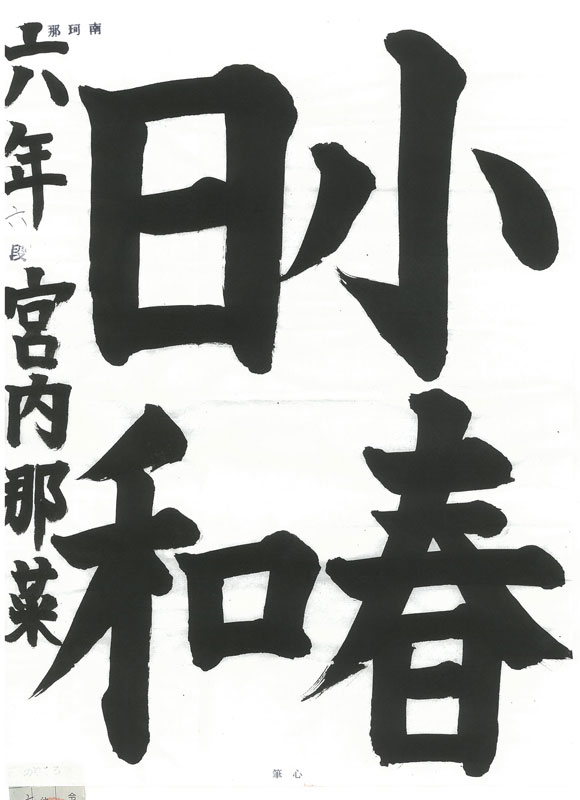 那珂南
小春
日和
六年 六段 宮内那菜
筆心